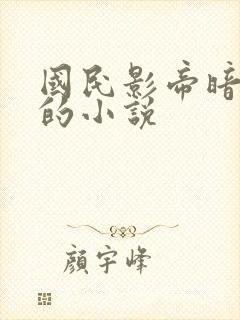 國民影帝暗
的小說
顏宇峰